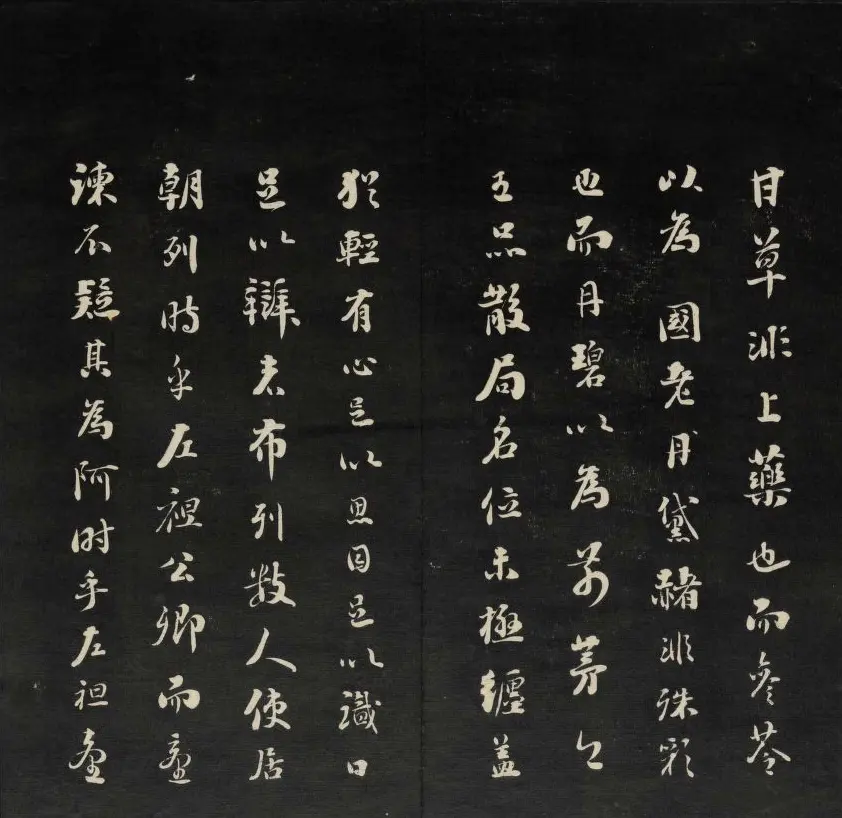 甘草非上藥也而參苓
以為國老丹黛赭非殊彩
也而丹碧以為前茅今
五品散局名位未極纏蓋
猶輕有心足以思目足以識口
足以辯者布列數人使居
朝列時乎左袒公卿而臺
諫不疑其為阿時乎左袒臺